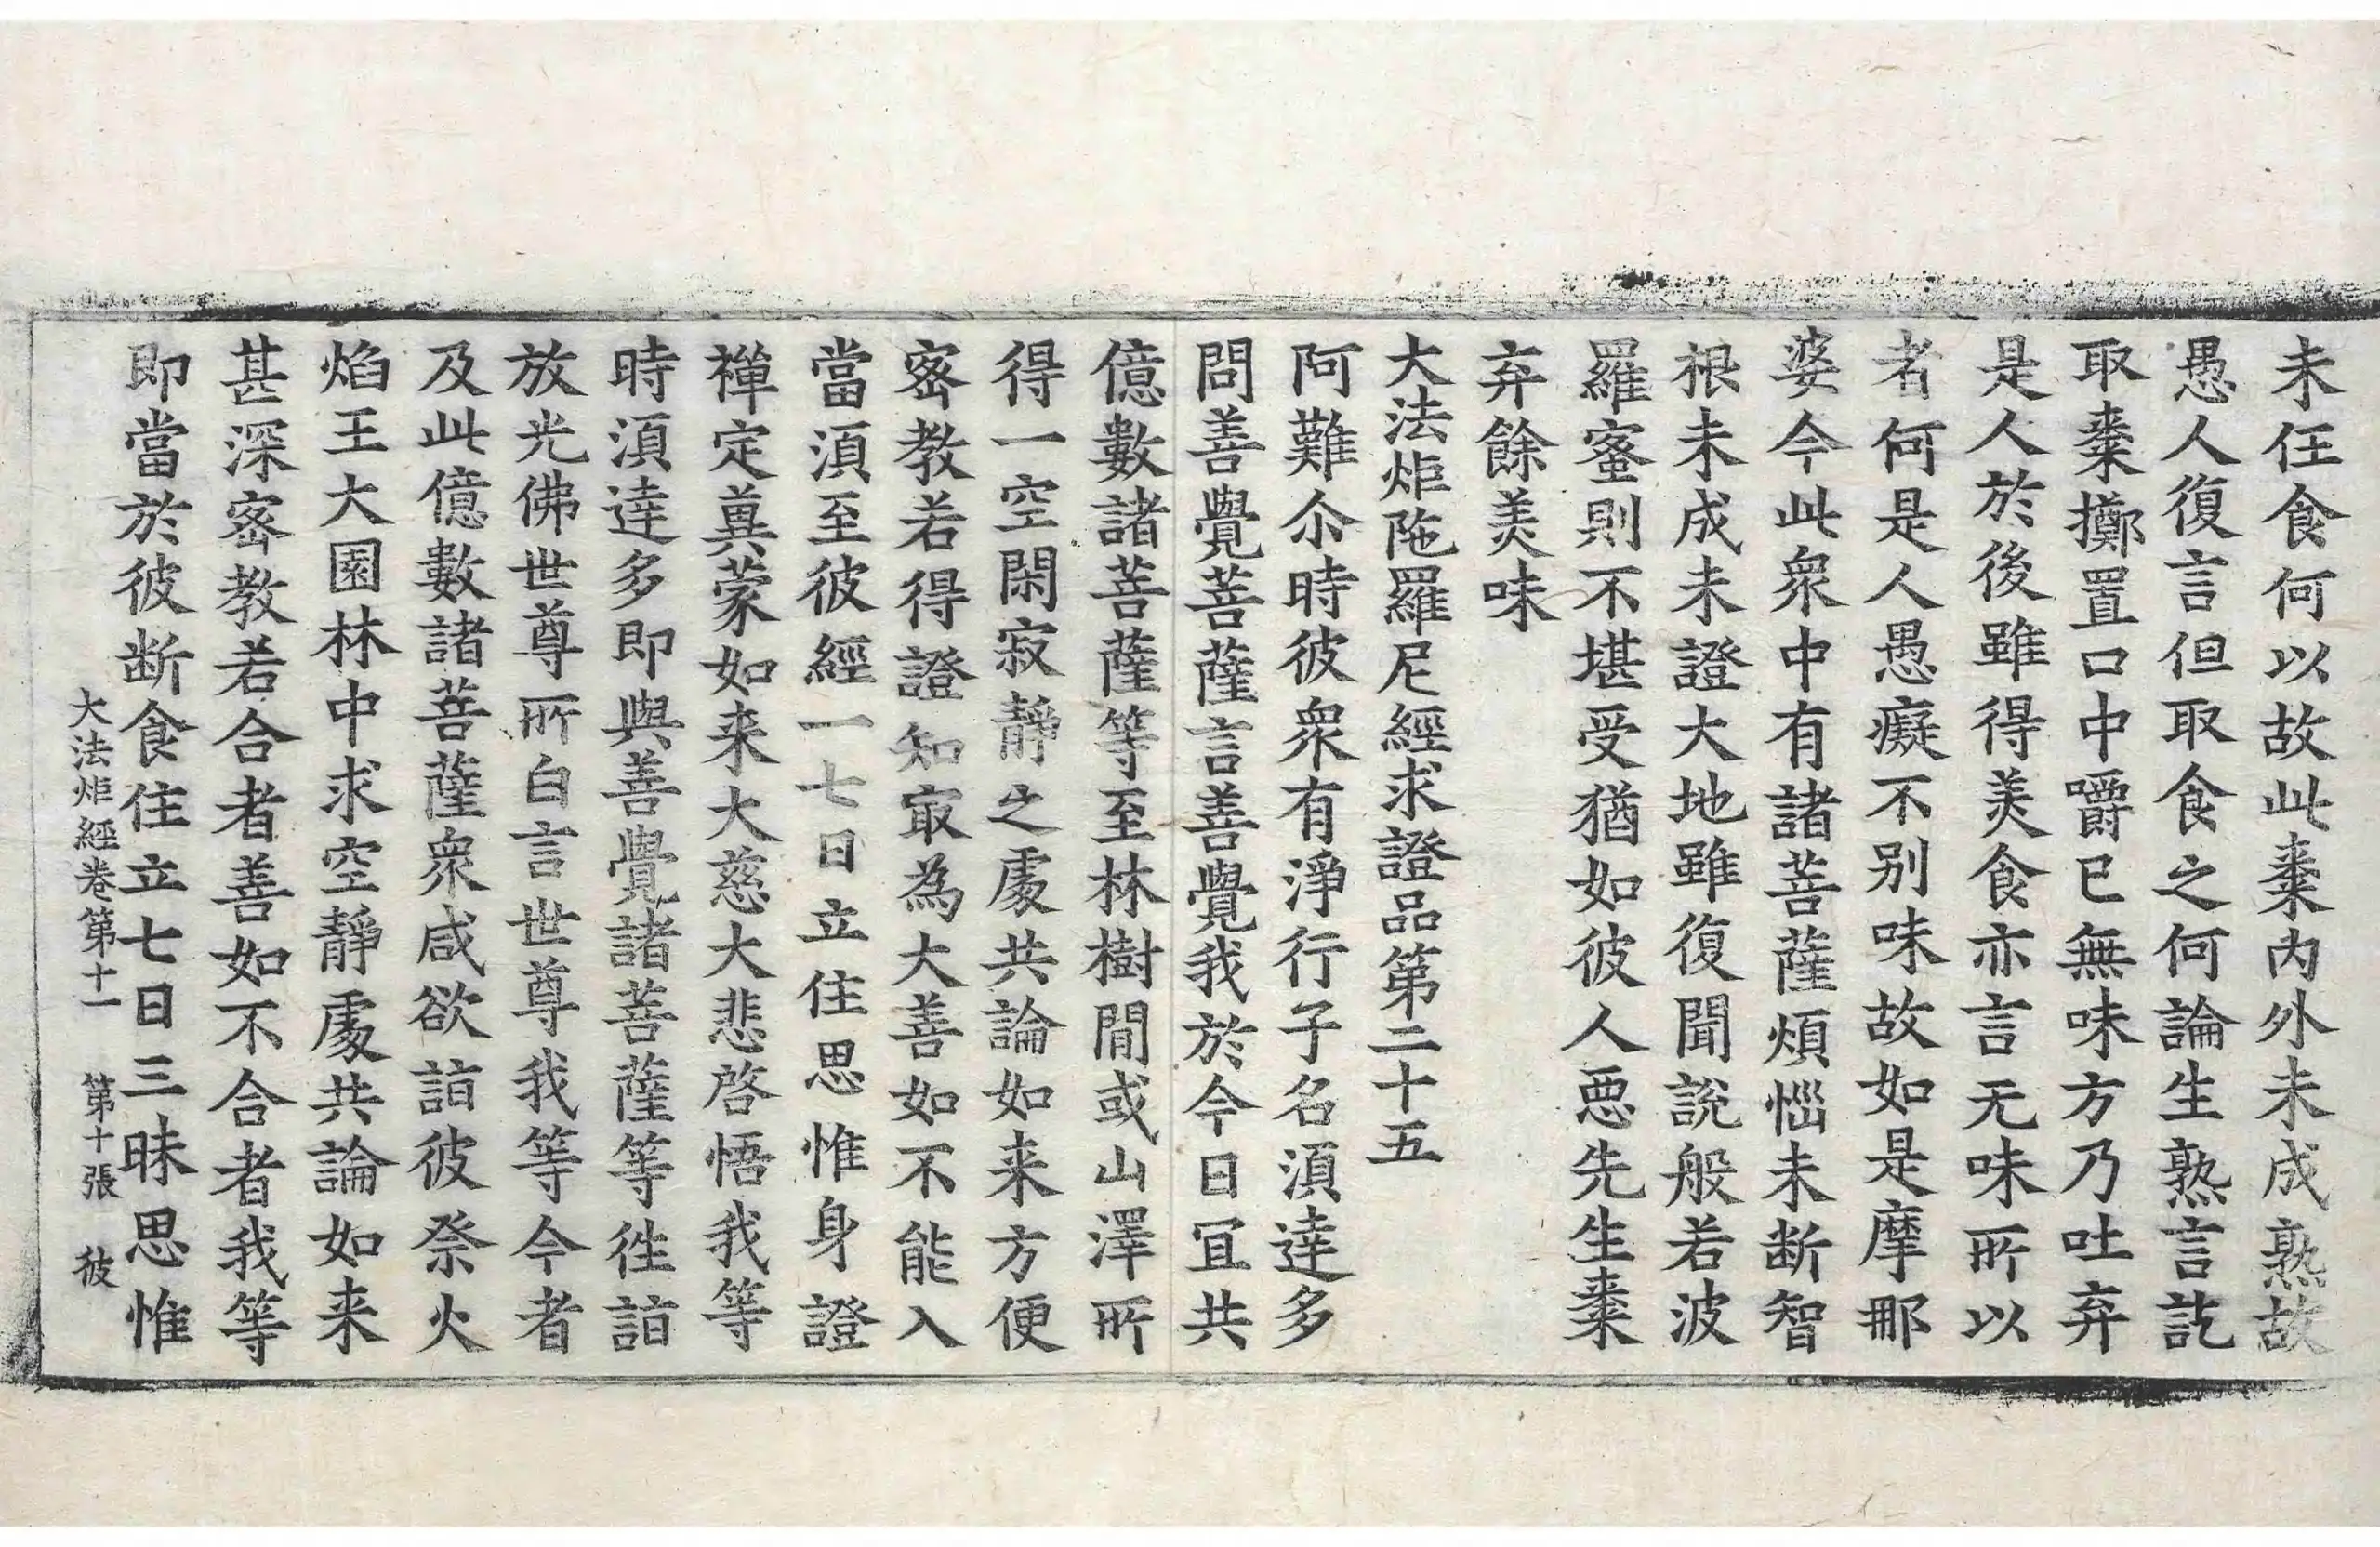 未任食何以故此棗内外未成熟故
愚人復言但取食之何論生熟言訖
取棗擲置口中嚼已無味方乃吐弃
是人於後雖得美食亦言无味所以
者何是人愚癡不別味故如是摩那
婆今此衆中有諸菩薩煩惱未断智
根未成未證大地雖復聞說般若波
羅蜜則不堪受猶如彼人惡先生棗
弃餘美味
大法炬陁羅尼經求證品第二十五
阿難尒時彼衆有淨行子名湏達多
問善覺菩薩言善覺我於今日冝共
億數諸菩薩等至林樹閒或山澤所
得一空閑寂靜之處共論如来方便
宻教若得證知冣為大善如不能入
當湏至彼經一七日立住思惟身證
禅定兾蒙如来大慈大悲啓悟我等
時湏達多即與善覺諸菩薩等徃詣
放光佛世尊所白言世尊我等今者
及此億數諸菩薩衆咸欲詣彼祭火
焰王大園林中求空靜處共論如来
甚深宻教若合者善如不合者我等
即當於彼断食住立七日三昧思惟
大法炬經卷第十一　第十張　彼